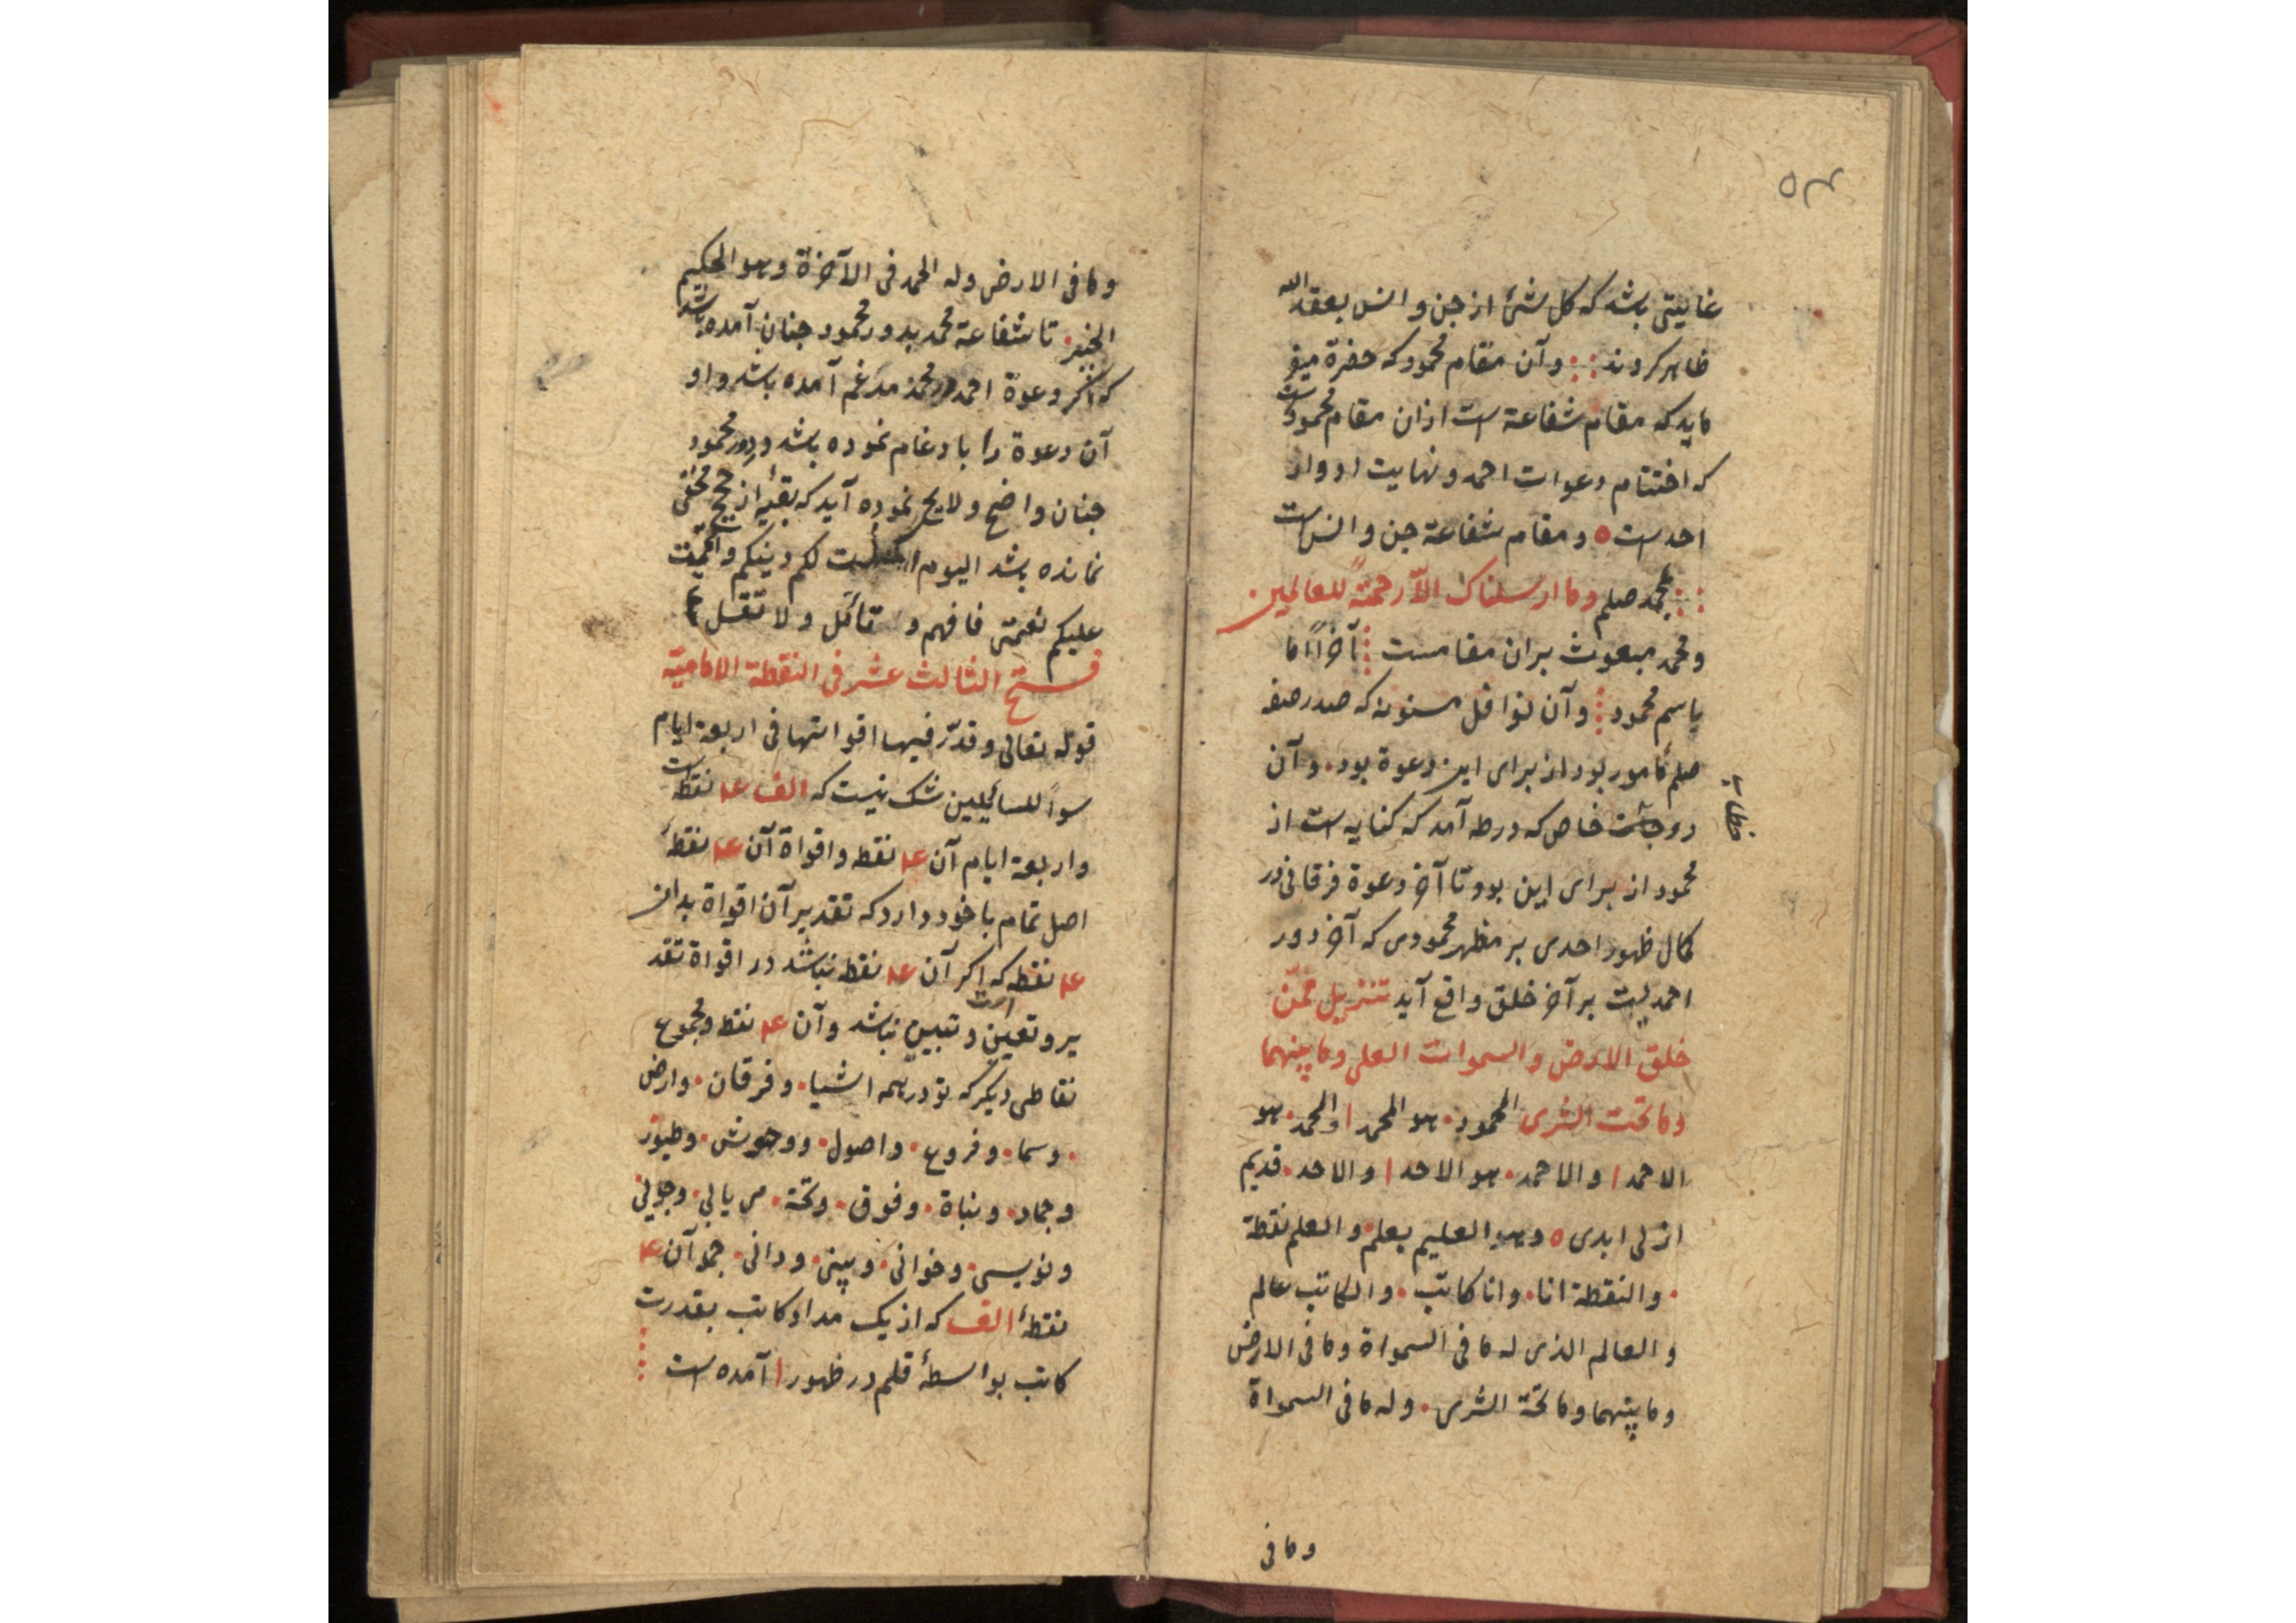 ۵۳
غایتی باشد که کل شئ از جن و انس بعقد الله
ظاهر کردند و آن مقام محمود که حضرة میفر
ماید که مقام شفاعة است ازان مقام محمود است
که اختتام دعوات احمد و نهایت ادوار
احد است ٥ و مقام شفاعة جن و انس است
بمحمد صلم وما ارسلناک الّا رحمةً للعالمین
و محمد مبعوث بران مقامست آخرًا اما
باسم محمود و آن نوافل مسنونه که صدر صفه
صلم مأمور بود از برای این دعوة بود و آن
دو خاص که در طه آمد که کنایه است از
محمود از برای این بود تا آخر دعوة فرقانی در
کمال ظهور احدی بر مظهر محمودی که آخر دور
احمدیت بر آخر خلق واقع آید تنزیل ممّن
خلق الارض والسموات العلی وما بینهما
وما تحت الثری المحمود هو المحمد ا والمحمد هو
الاحمد ا والاحمد هو الاحد ا والاحد قدیم
ازلی ابدی ٥ وهو العلیم بعلم والعلم نقطة
والنقطة انا وانا کاتب والکاتب عالم
والعالم الذی له ما فی السمواة وما فی الارض
وما بینهما وما تحة الثری وله ما فی السمواة
وما فی
وما فی الارض وله الحمد فی الآخرة وهو الحکیم
الخبیر تا شفاعة محمد بدور محمود چنان آمده باشد
که اگر دعوة احمد در محمد مدغم آمده باشد و او
آن دعوة را بادغام نموده باشد و دور محمود
چنان واضح و لایح نموده آید که بقیهٔ از هیچ مخفی
نمانده باشد الیوم اکملت لکم دینکم واتممت
علیکم نعمتی فافهم و تأمّل ولا تغفل
فتح الثالث عشر فی النقطة الامامیّة
قوله تعالی وقدّر فیها اقواتها فی اربعة ایام
سواً للسائلین شک نیست که الف ۴ نقطه است
و اربعة ایام آن ۴ نقطه و اقواة آن ۴ نقطهٔ
اصل تمام با خود دارد که تقدیر آن اقواة بدان
۴ نقطه که اگر آن ۴ نقطه نباشد در اقواة تقد
یر و تعین و تبیین نباشد و آن ۴ نقطه و مجموع
نقاطی دیگر که تو در همه اشیا و فرقان و ارض
و سما و فروع و اصول و وحوش و طیور
و جماد و نباة و فوق و تحة می یابی و جوئی
و نویسی و خوانی و بینی و دانی جمو آن ۴
نقطهٔ الف که از یک مداد کاتب بقدرت
کاتب بواسطهٔ قلم در ظهور ا آمده است